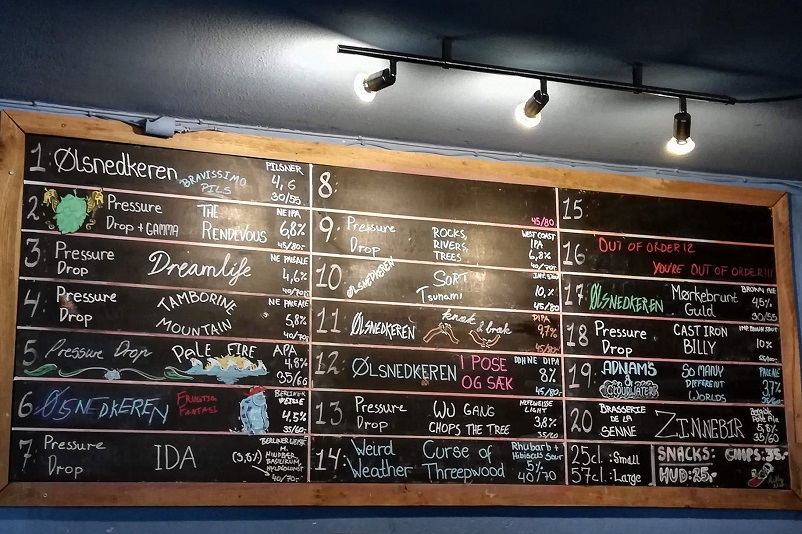 1: Ølsnedkeren BRAVISSIMO PILS PILSNER 4,6 30/55
2: Pressure Drop + GAMMA THE RENDEVOUS NEIPA 6,8% 45/80.-
3: Pressure Drop Dreamlife NE PALEALE 4,6% 40/70.-
4: Pressure Drop TAMBORINE MOUNTAIN NE PALEALE 5,8% 40/70.-
5: Pressure Drop PALE FIRE APA 4,8% 35/60
6: ØLSNEDKEREN FRUGTIG FANTASI BERLINER WEISSE 4,5% 35/60
7: Pressure Drop IDA (3,6%) BERLINER WEISSE M. HINDBÆR, BASILIKUM, HYLDEBLOMST 40/70.-
8: 45/80
9: Pressure Drop ROCKS, RIVERS, TREES WEST COAST IPA 6,8% 40/70.-
10 ØLSNEDKEREN SORT Tsunami IMP. STOUT 10,% 45/80
11: ØLSNEDKEREN knæk & bræk DIPA 9,7% 45/80.-
12: ØLSNEDKEREN I POSE OG SÆK DDH NE DIPA 8% 45/80.-
13 Pressure Drop WU GANG CHOPS THE TREE HEFEWEISSE LIGHT 3,8% 35/60
14: Weird Weather Curse of Threepwood Rhubarb + Hibiscus Sour 5% 40/70
15:
16: OUT OF ORDER!?
YOU'RE OUT OF ORDER!!!
17: ØLSNEDKEREN Mørkebrunt Guld BROWN ALE 4,5% 30/55
18 Pressure Drop CAST IRON BILLY IMP. BROWN STOUT 10%
19: ADNAMS & CLOUDWATER SO MANY DIFFERENT WORLDS PALE ALE 3,7% 35/60.-
20 BRASSERIE DE LA SENNE ZINNEBIR BELGIAN PALE ALE 5,8% 35/60
25cl.: Small
57cl.: Large
SNACKS: CHIPS: 35.-
HUD: 25.-